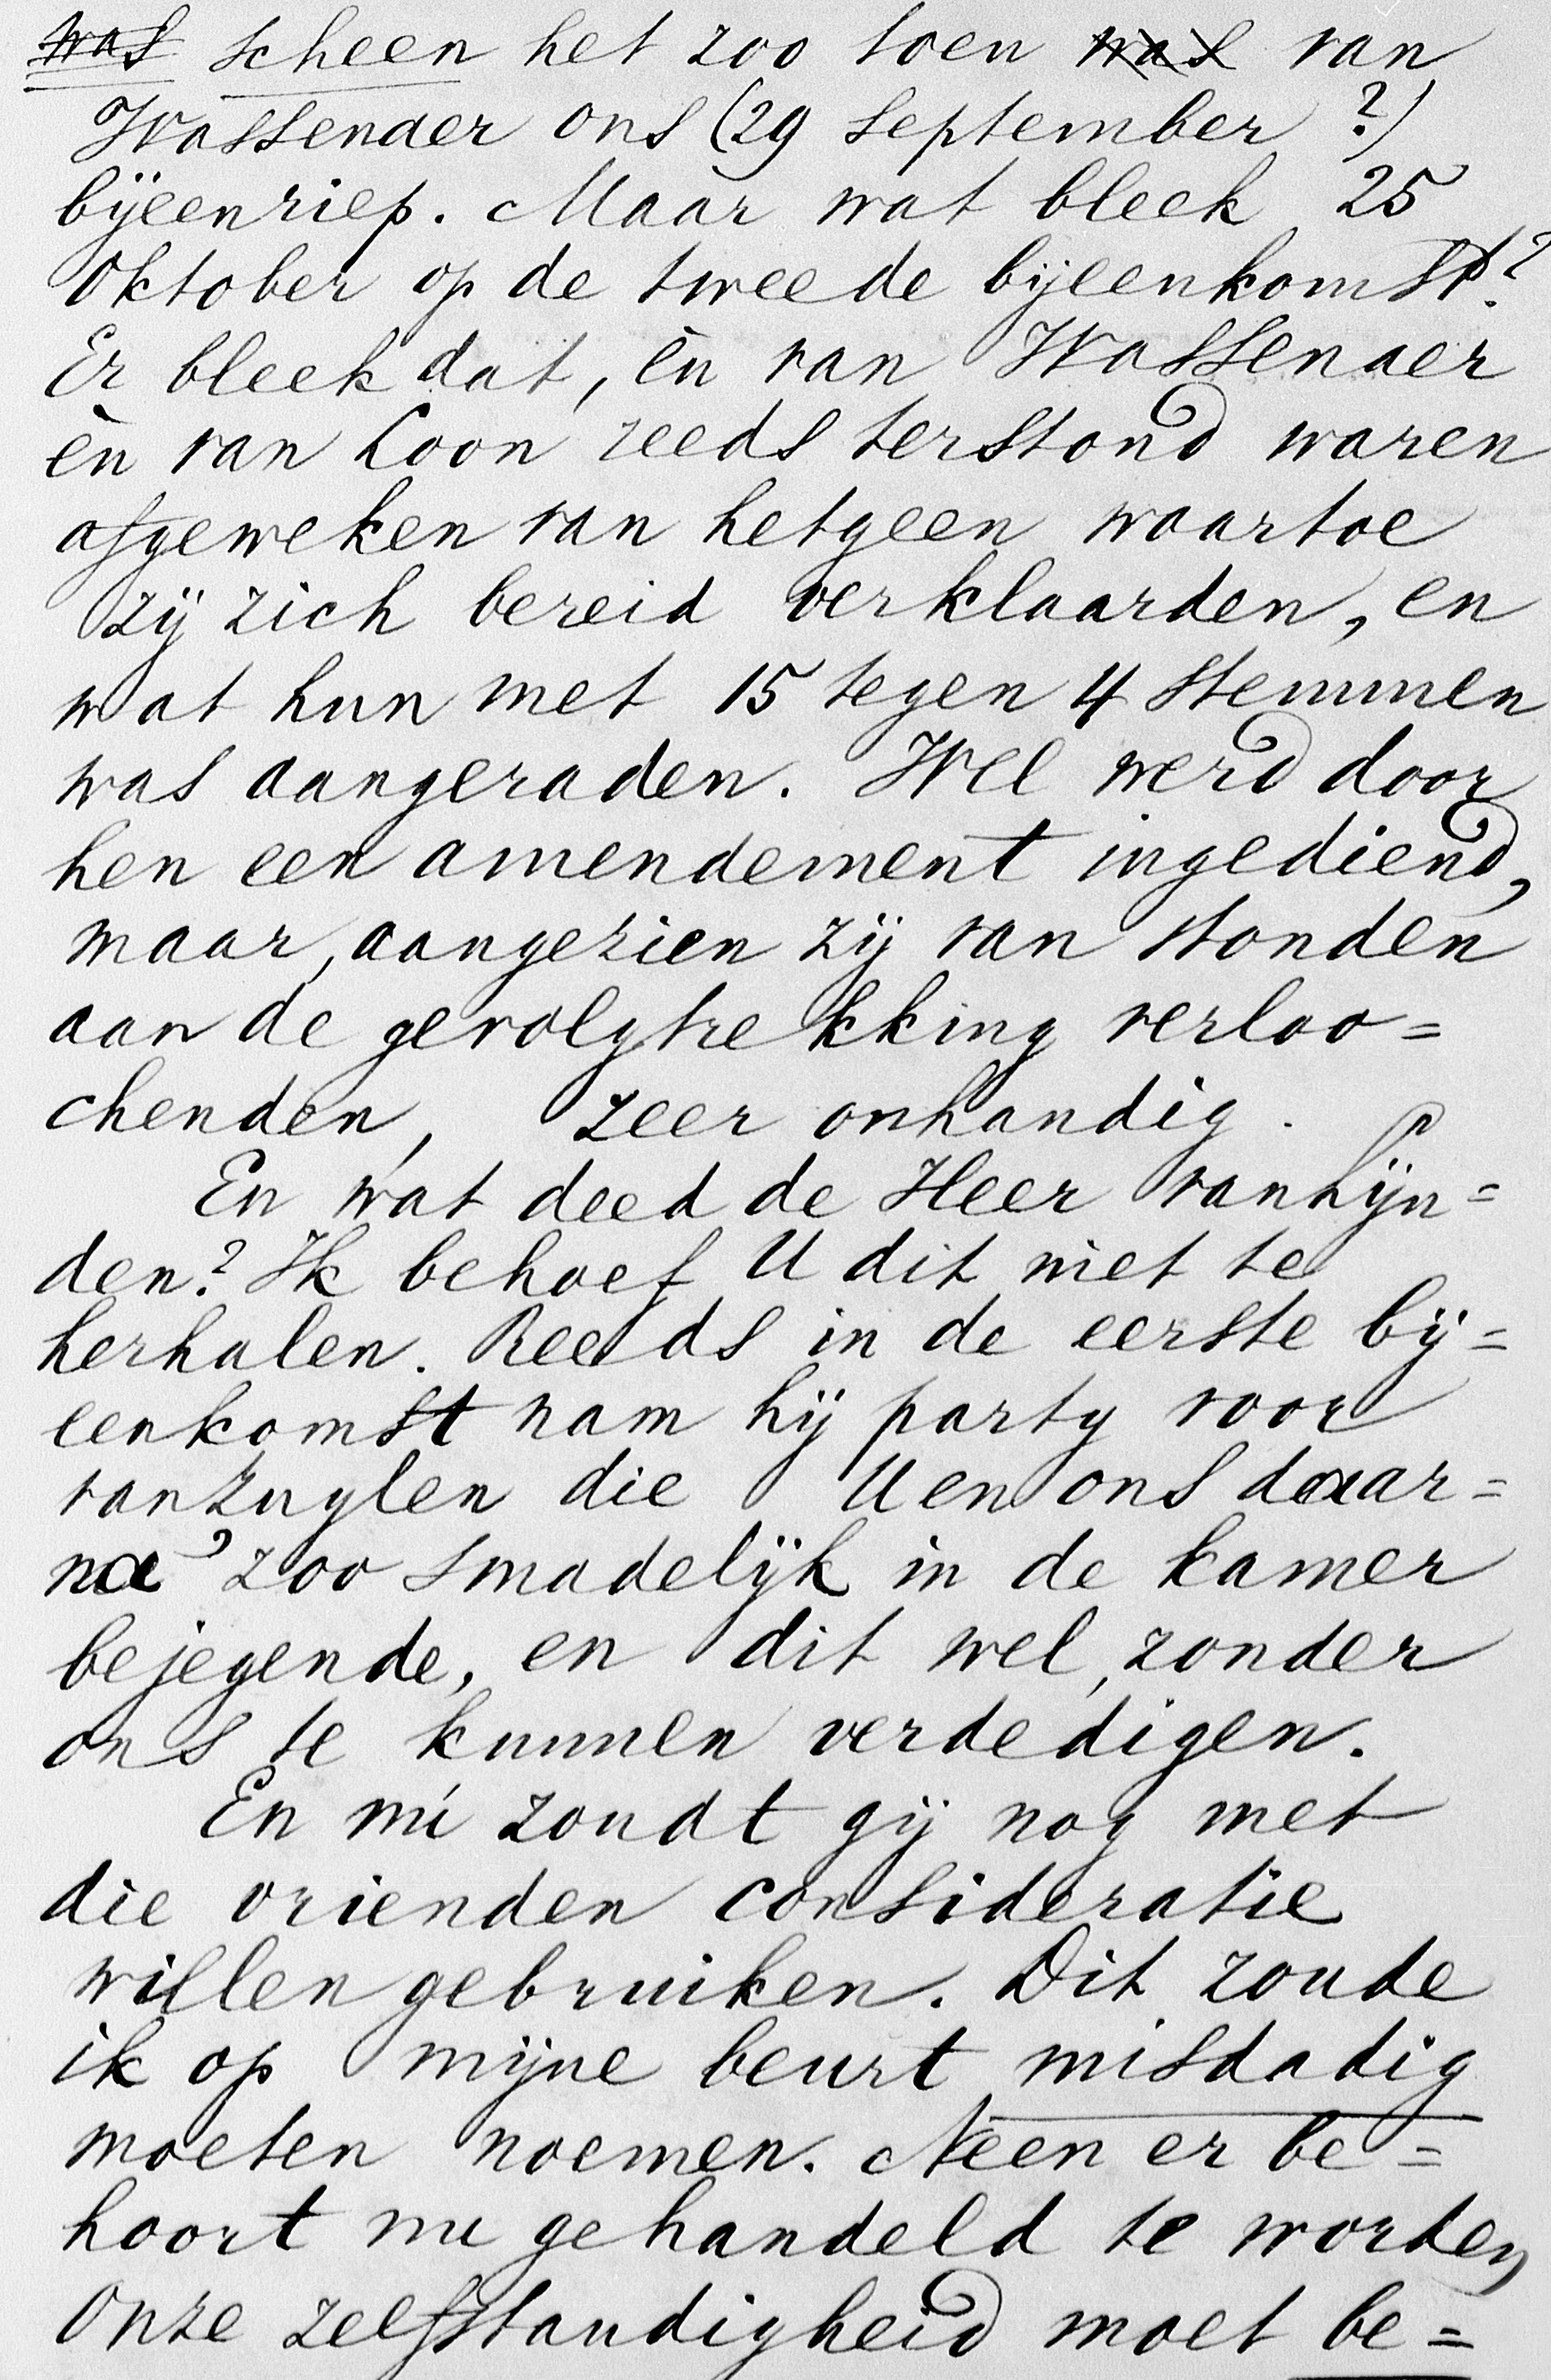 was scheen het zoo toen was van
Wassender ons (29 September ?)
bijeenriep. Maar wat bleek 25
Oktober op de tweede bijeenkomst?
Er bleek dat, èn van Wassenaer
èn van Loon reeds terstond waren
afgeweken van hetgeen waartoe
zij zich bereid verklaarden, en
wat hun met 15 tegen 4 stemmen
was aangeraden. Wel werd door
hen een amendement ingediend,
maar, aangezien zij van stonden
aan de gevolgtrekking verloo=
chenden, zeer onhandig.
En wat deed de Heer van Lijn=
den? Ik behoef U dit niet te
herhalen. Reeds in de eerste bij=
eenkomst nam hij party voor
van Zuylen die U en ons daar=
na zoo smadelijk in de kamer
bejegende, en dit wel, zonder
ons te kunnen verdedigen.
En nú zoudt gij nog met
die vrienden consideratie
willen gebruiken. Dit zoude
ik op mijne beurt misdadig
moeten noemen. Neen er be=
hoort nu gehandeld te worden
Onze zelfstandigheid moet be=